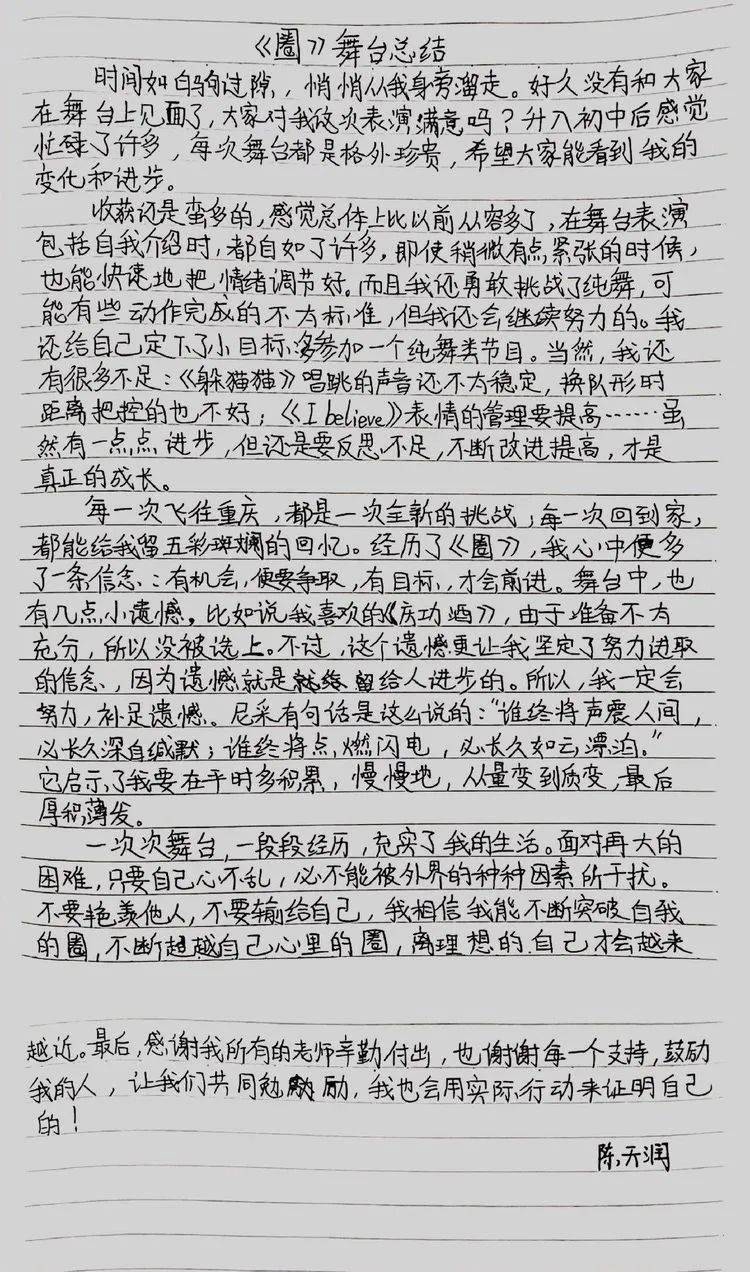 《圈》舞台总结
时间如白驹过隙，悄悄从我身旁溜走。好久没有和大家
在舞台上见面了，大家对我这次表演满意吗？升入初中后感觉
忙碌了许多，每次舞台都是格外珍贵，希望大家能看到我的
变化和进步。
收获还是蛮多的，感觉总体上比以前从容多了，在舞台表演
包括自我介绍时，都自如了许多，即使稍微有点紧张的时候，
也能快速地把情绪调节好。而且我还勇敢挑战了纯舞，可
能有些动作完成的不太标准，但我还会继续努力的。我
还给自己定下了小目标：多参加一个纯舞类节目。当然，我还
有很多不足：《躲猫猫》唱跳的声音还不太稳定，换队形时
距离把控的也不好；《I believe》表情的管理要提高……虽
然有一点点进步，但还是要反思不足，不断改进提高，才是
真正的成长。
每一次飞往重庆，都是一次全新的挑战，每一次回到家，
都能给我留五彩斑斓的回忆。经历了《圈》，我心中便多
了一条信念：有机会，便要争取，有目标，才会前进。舞台中，也
有几点小遗憾，比如说我喜欢的《庆功酒》，由于准备不太
充分，所以没被选上。不过，这个遗憾更让我坚定了努力进取
的信念，因为遗憾就是留给人进步的。所以，我一定会
努力，补足遗憾。尼采有句话是这么说的：“谁终将声震人间，
必长久深自缄默；谁终将点燃闪电，必长久如云漂泊。”
它启示了我要在平时多积累，慢慢地，从量变到质变，最后
厚积薄发。
一次次舞台，一段段经历，充实了我的生活。面对再大的
困难，只要自己心不乱，必不能被外界的种种因素所干扰。
不要艳羡他人，不要输给自己，我相信我能不断突破自我
的圈，不断超越自己心里的圈，离理想的自己才会越来
越近。最后，感谢我所有的老师辛勤付出，也谢谢每一个支持，鼓励
我的人，让我们共同勉励，我也会用实际行动来证明自己
的！
陈天润